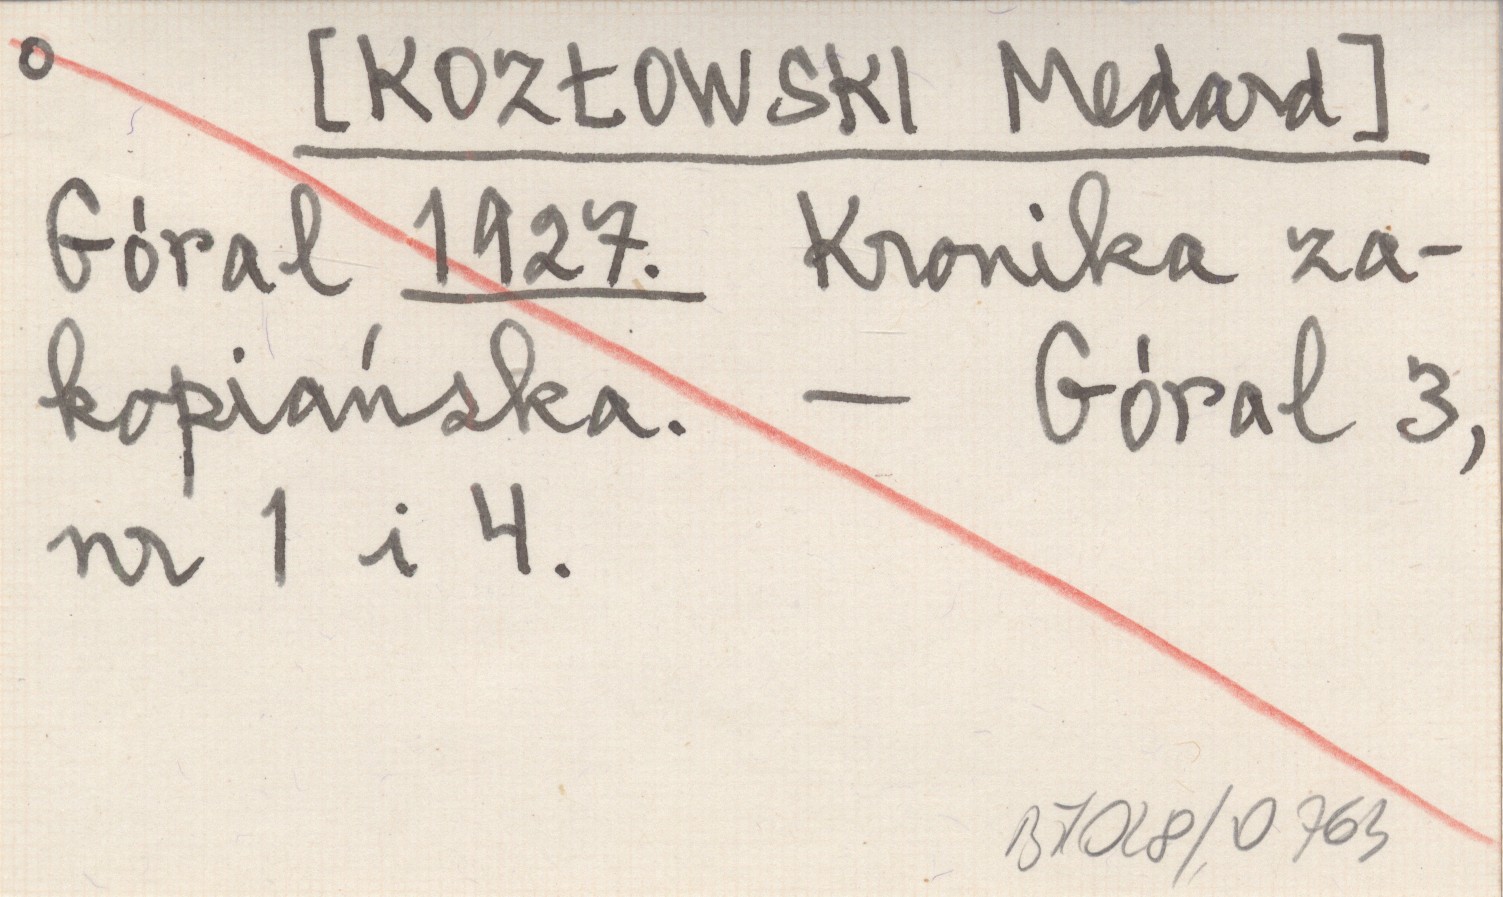 o [KOZŁOWSKI Medard]
Góral 1927. Kronika za-
kopiańska. — Góral 3,
nr 1 i 4.
763